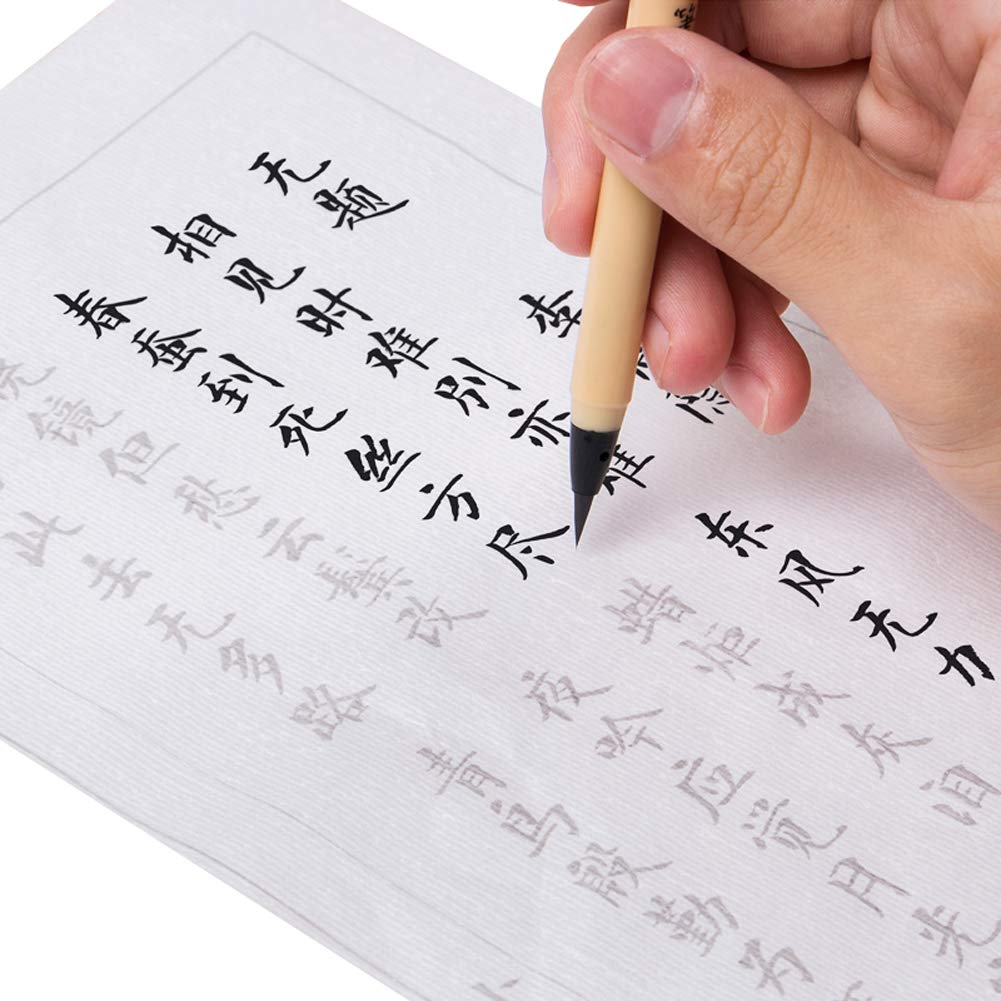 无题
李
相见时难别亦难 东风无力
春蚕到死丝方尽 蜡炬成灰泪
镜但愁云鬓改 夜吟应觉月光
此去无多路 青鸟殷勤为